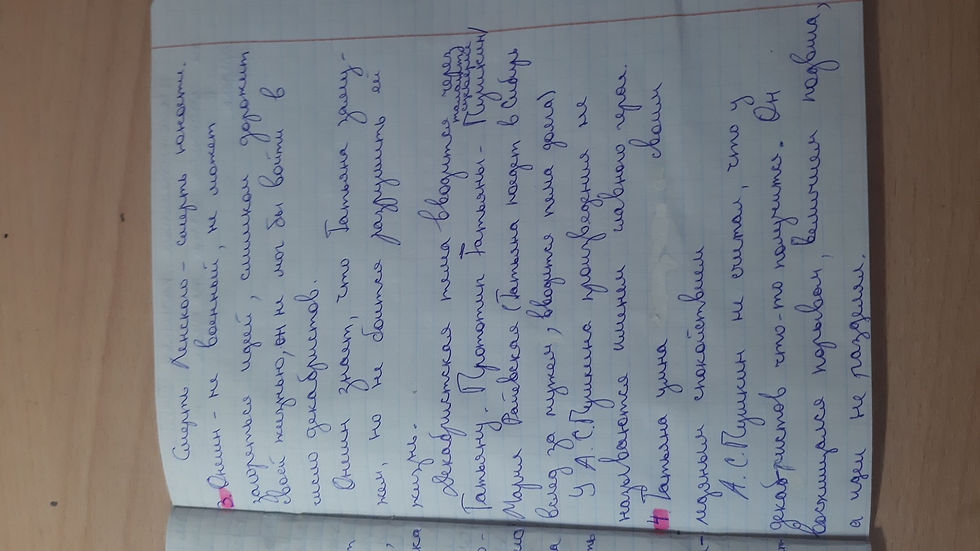 Смерть Ленского - смерть юности.
3. Онегин - не военный, не может
загореться идеей, слишком дорожит
своей жизнью, он не мог бы войти в
число декабристов.
Онегин знает, что Татьяна заму-
жем, но не боится разрушить ей
жизнь.
Декабристская тема вводится через
Татьяну. Прототип Татьяны - Пушкин/
Мария Раевская (Татьяна поедет в Сибирь
вслед за мужем, вводится тема долга)
У А.С.Пушкина произведения не
называются именем главного героя.
4 Татьяна умна своим
ледяным спокойствием
А.С.Пушкин не считал, что у
декабристов что-то получится. Он
восхищался порывом, величием подвига,
а идеи не разделял.